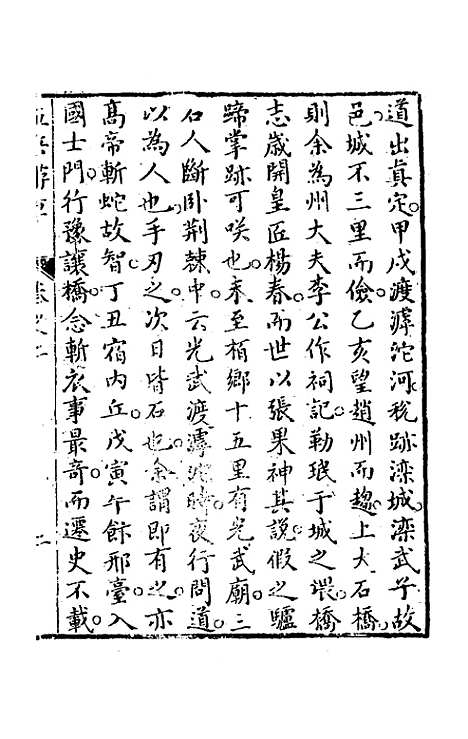 道出真定甲戌渡滹沱河稅跡滦城滦武子故
邑城不三里而儉乙亥望趙州而趨上大石橋
則余為州大夫李公作祠記勒珉于城之堧橋
志歲開皇匠楊春而世以張果神其說假之驢
蹄掌跡可咲也未至栢鄉十五里有光武廟三
石人斷卧荆棘中云光武渡滹沱時夜行問道
以為人也手刃之次日皆石也余謂即有之亦
高帝斬蛇故智丁丑宿内丘戊寅午餘邢臺入
國士門行豫讓橋念斬衣事最奇而遷史不載